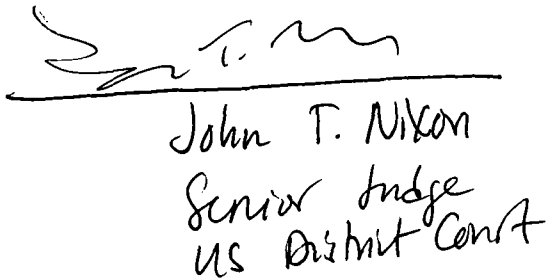 T.
John T. Nixon
Senior Judge
US District Court